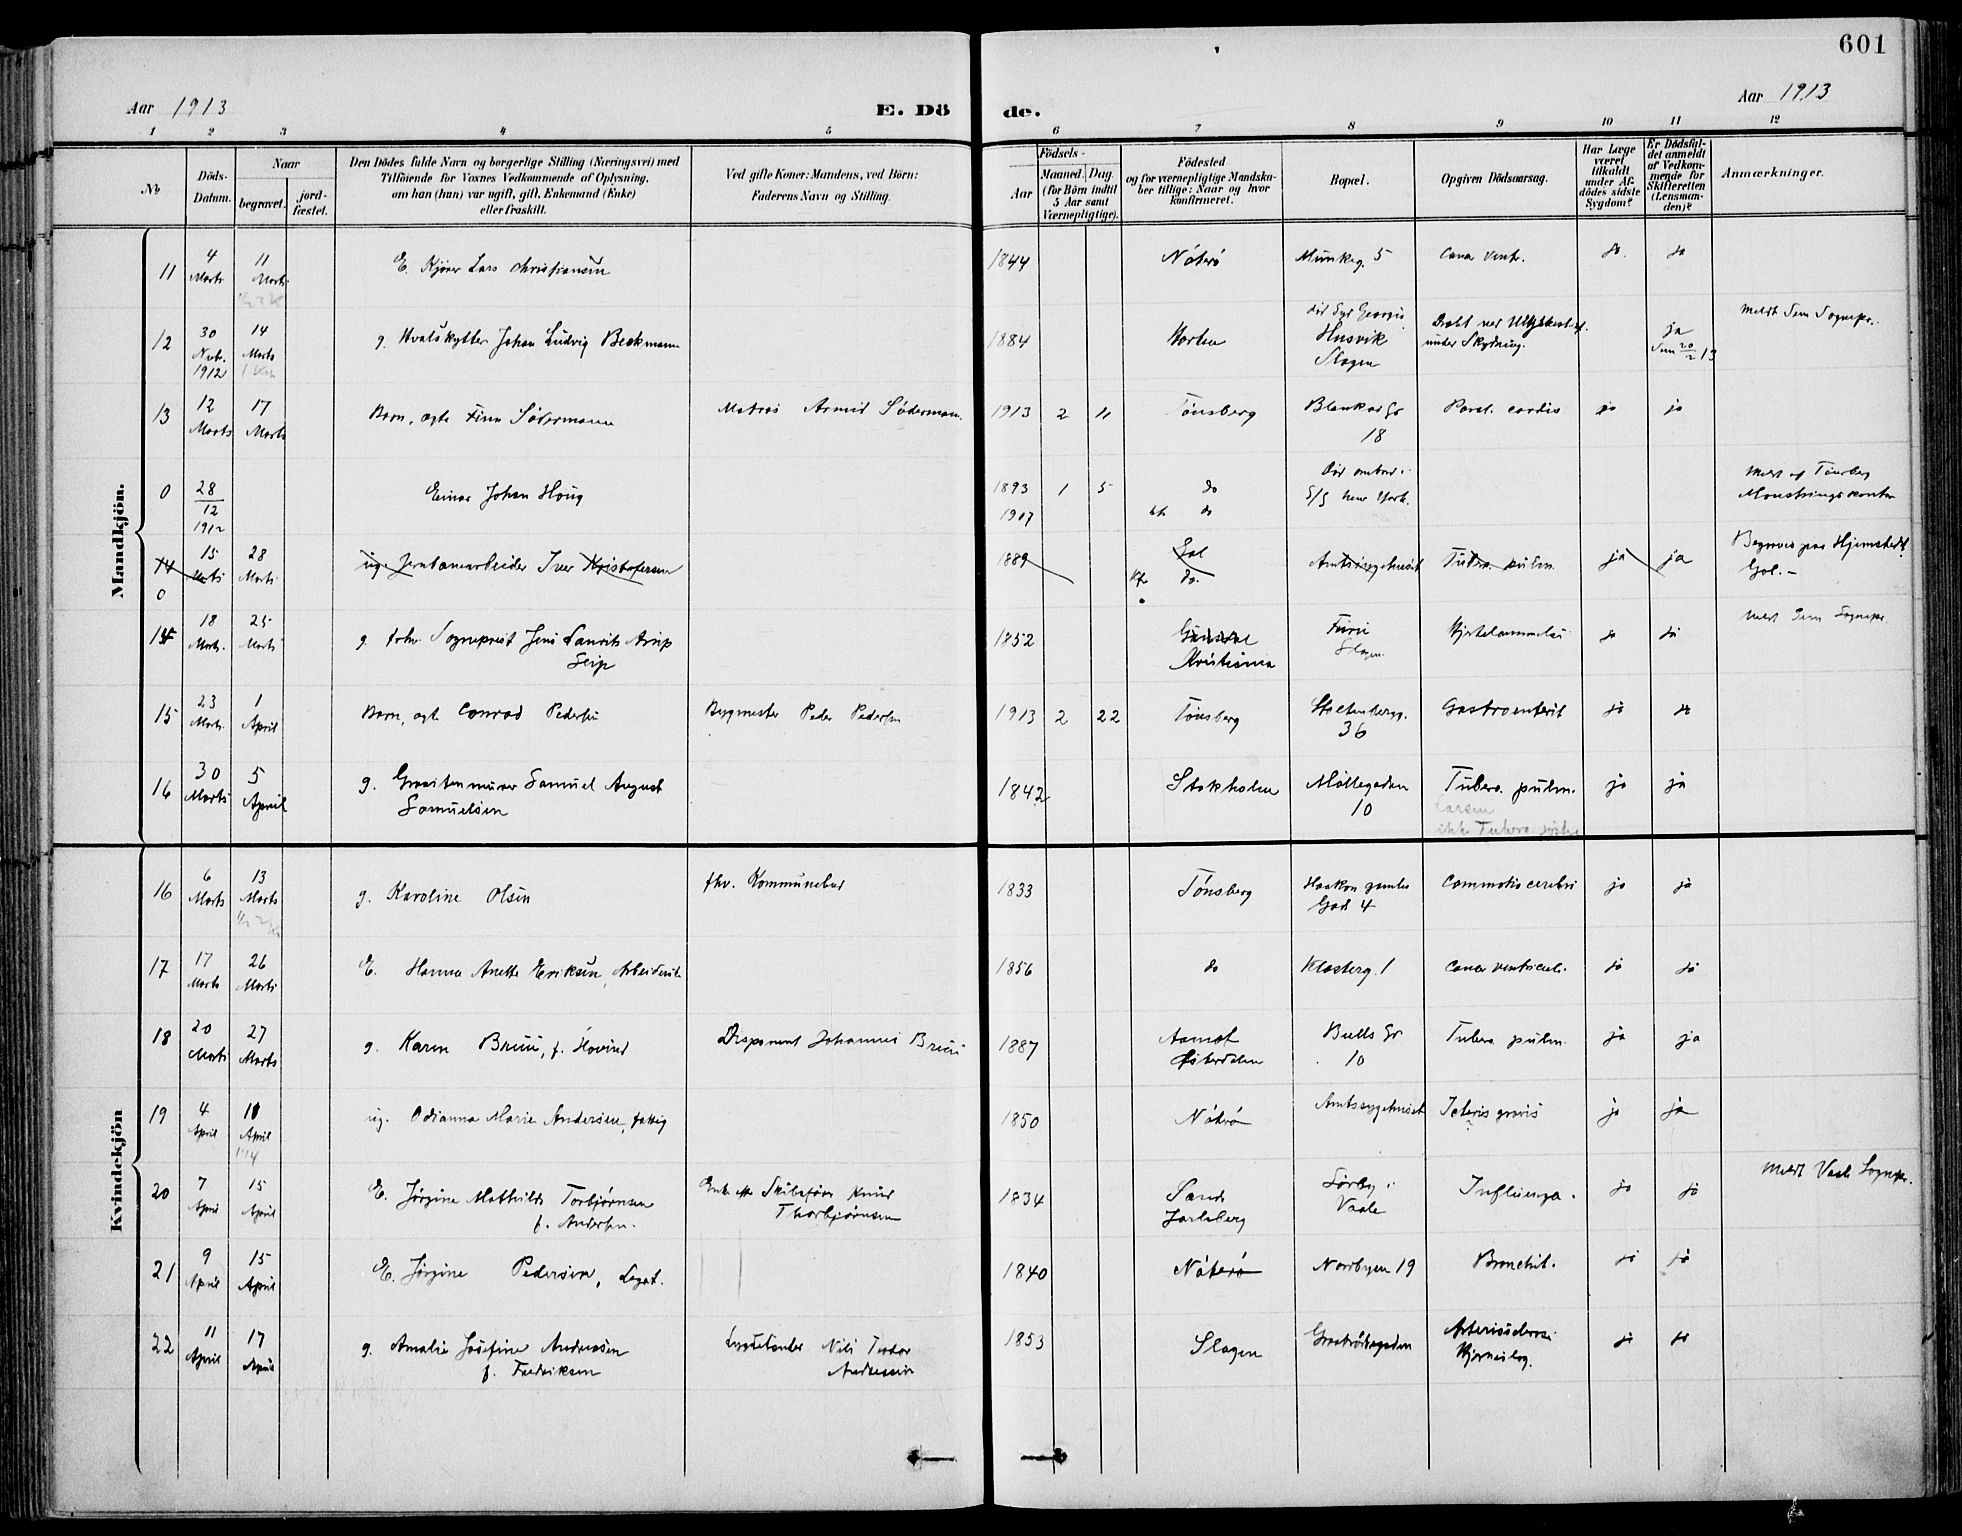 601
Aar 1913
E. Dö
de.
Aar 1913
1 2 3 4 5 6 7 8 9 10 11 12
No
Döds-
Datum.
Naar
begravet.
jord-
fæstet.
Den Dödes fulde Navn og borgerlige Stilling (Næringsvei) med
Tilföiende for Voxnes Vedkommende af Oplysning,
om han (hun) var ugift, gift, Enkemand (Enke)
eller fraskilt.
Ved gifte Koner: Mandens, ved Börn:
Faderens Navn og Stilling.
Födsels-
Aar
Maaned. Dag.
(for Börn indtil
5 Aar samt
Værnepligtige).
Födested
og for værnepligtige Mandska-
ber tillige: Naar og hvor
konfirmeret.
Bopæl.
Opgiven Dödsaarsag.
Har Læge
været
tilkaldt
under Af-
dödes sidste
Sygdom?
Er Dödsfal-
det anmeldt
af Vedkom-
mende for
Skifteretten
(Lensman-
den)?
Anmærkninger.
Mandkjön.
11 4 Marts 11 Marts E. Kjører Lars Christiansen 1844 Nøterø Munkeg. 5 Cancer Ventr. ja ja
12 30 Nvbr. 1912 14 Marts g. Hvalskytter Johan Ludvig Beckmann 1884 Horten død Syd Georgia
Husvik
Slagen
under Skydning. ja
Sem 20/2 13
Meldt Sem Sognepr.
13 12 Marts 17 Marts Barn, ægte Finn Södermann Matros Arvid Södermann 1913 2 11 Tønsberg
18 Paral. cordis ja ja
0 28/12 1912 Einar Johan Houg 1893 1 5 do
1907 do
Død ombord i
S/S New York.
Meldt af Tönsberg
Mønstringskontor
14 0 15 Marts 28 Marts ug. Jernbanearbeider Iver Kristofersen 1889 Gol
Kf. do. Amtssygehuset Tuberc. pulm. ja ja
Begraves paa Hjemstedet
Gol. –
14 18 Marts 25 Marts g. frhv. Sogneprest Jens Laurits Arup
Seip 1852
Kristiania
Slagen Hjertelammelse ja ja
Meldt Sem Sognepr.
15 23 Marts 1 April Barn, ægte Conrad Pedersen Bygmester Peder Pedersen 1913 2 22 Tønsberg Stoltenbergg.
36 Gastroenterit ja ja
16 30 Marts 5 April g. Graastenmurer Samuel August
Samuelsen 1842 Stokholm Møllegaden
10 Tuberc. pulm. ja ja
Larsen
ikke Tuberc.
Kvindekjön
16 6 Marts 13 Marts g. Karoline Olsen fhv. Kommunebud 1833 Tönsberg Haakon gamles
Gad 4 Commotio cerebri ja ja
17 17 Marts 26 Marts E. Hanna Anette Eriksen, Arbeiderske 1856 do Klosterg. 1 Cancer ventriculi. ja ja
18 20 Marts 27 Marts g. Karen Bruu, f. Hovind Disponent Johannes Bruu 1887 Aamot
Østerdalen Bulls Gr
10 Tuberc. pulm. ja ja
19 4 April 10 April ug. Odianna Marie Andersen, fattig 1850 Nøterø Amtssygehuset Icterus gravis ja ja
20 7 April 15 April E. Jörgine Mathilde Torbjørnsen
f. Andersen.
Enke efter Skibsfører Knud
Thorbjørnsen 1834 Sande
Jarlsberg Sørby i
Vaale Influenza. ja ja
Meldt Vaale Sognepr.
21 9 April 15 April E. Jörgine Pedersen, Legat. 1840 Nøterø Nordbyen 19 Bronchit. ja ja
22 11 April 17 April g. Amalie Josefine Andreasen
f. Fredriksen
Lygtetænder Nils Teodor
Andreassen 1853 Slagen Graabrødregaden Arteriosclerose
ja ja